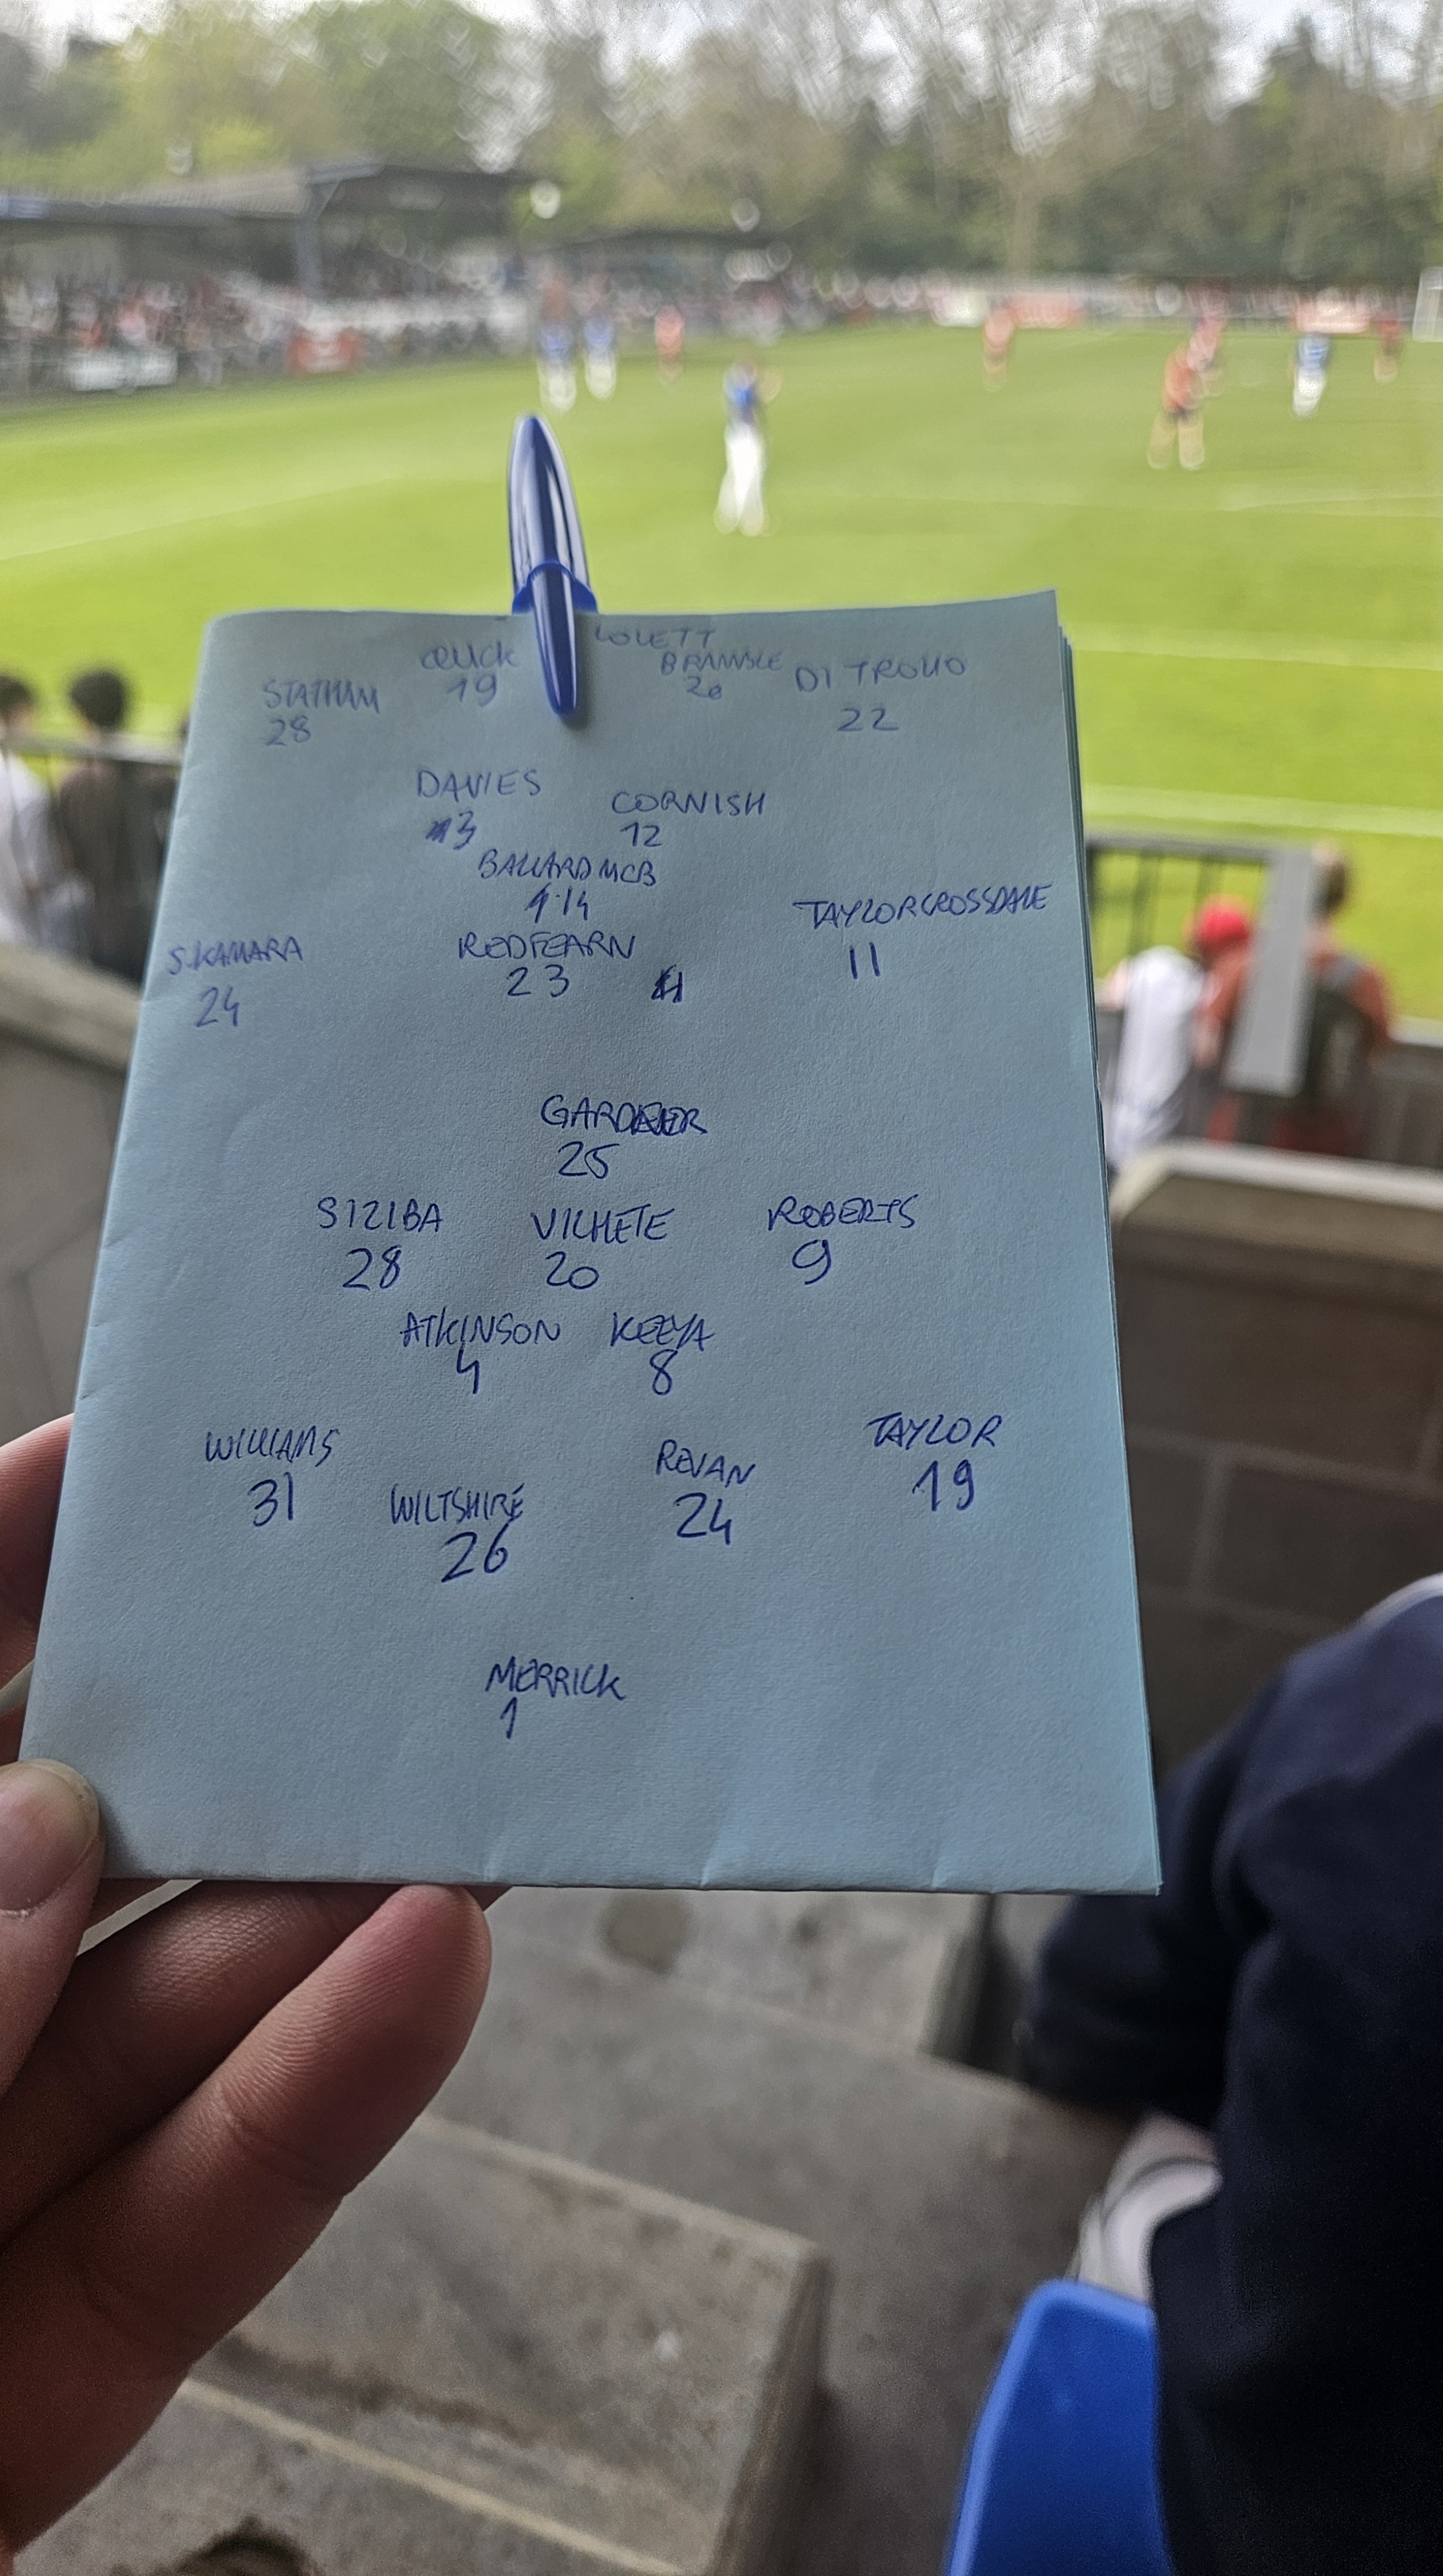 LOVETT
QUICK BRAMBLE DI TROLIO
STATHAM 19 20
28 22
DAVIES CORNISH
3 12
BALLARD MCB
14
S.KAMARA REDFEARN TAYLORCROSSDALE
24 23 11
GARDNER
25
SIZIBA VILHETE ROBERTS
28 20 9
ATKINSON KEEYA
4 8
WILLIAMS REVAN TAYLOR
31 WILTSHIRE 24 19
26
MERRICK
1